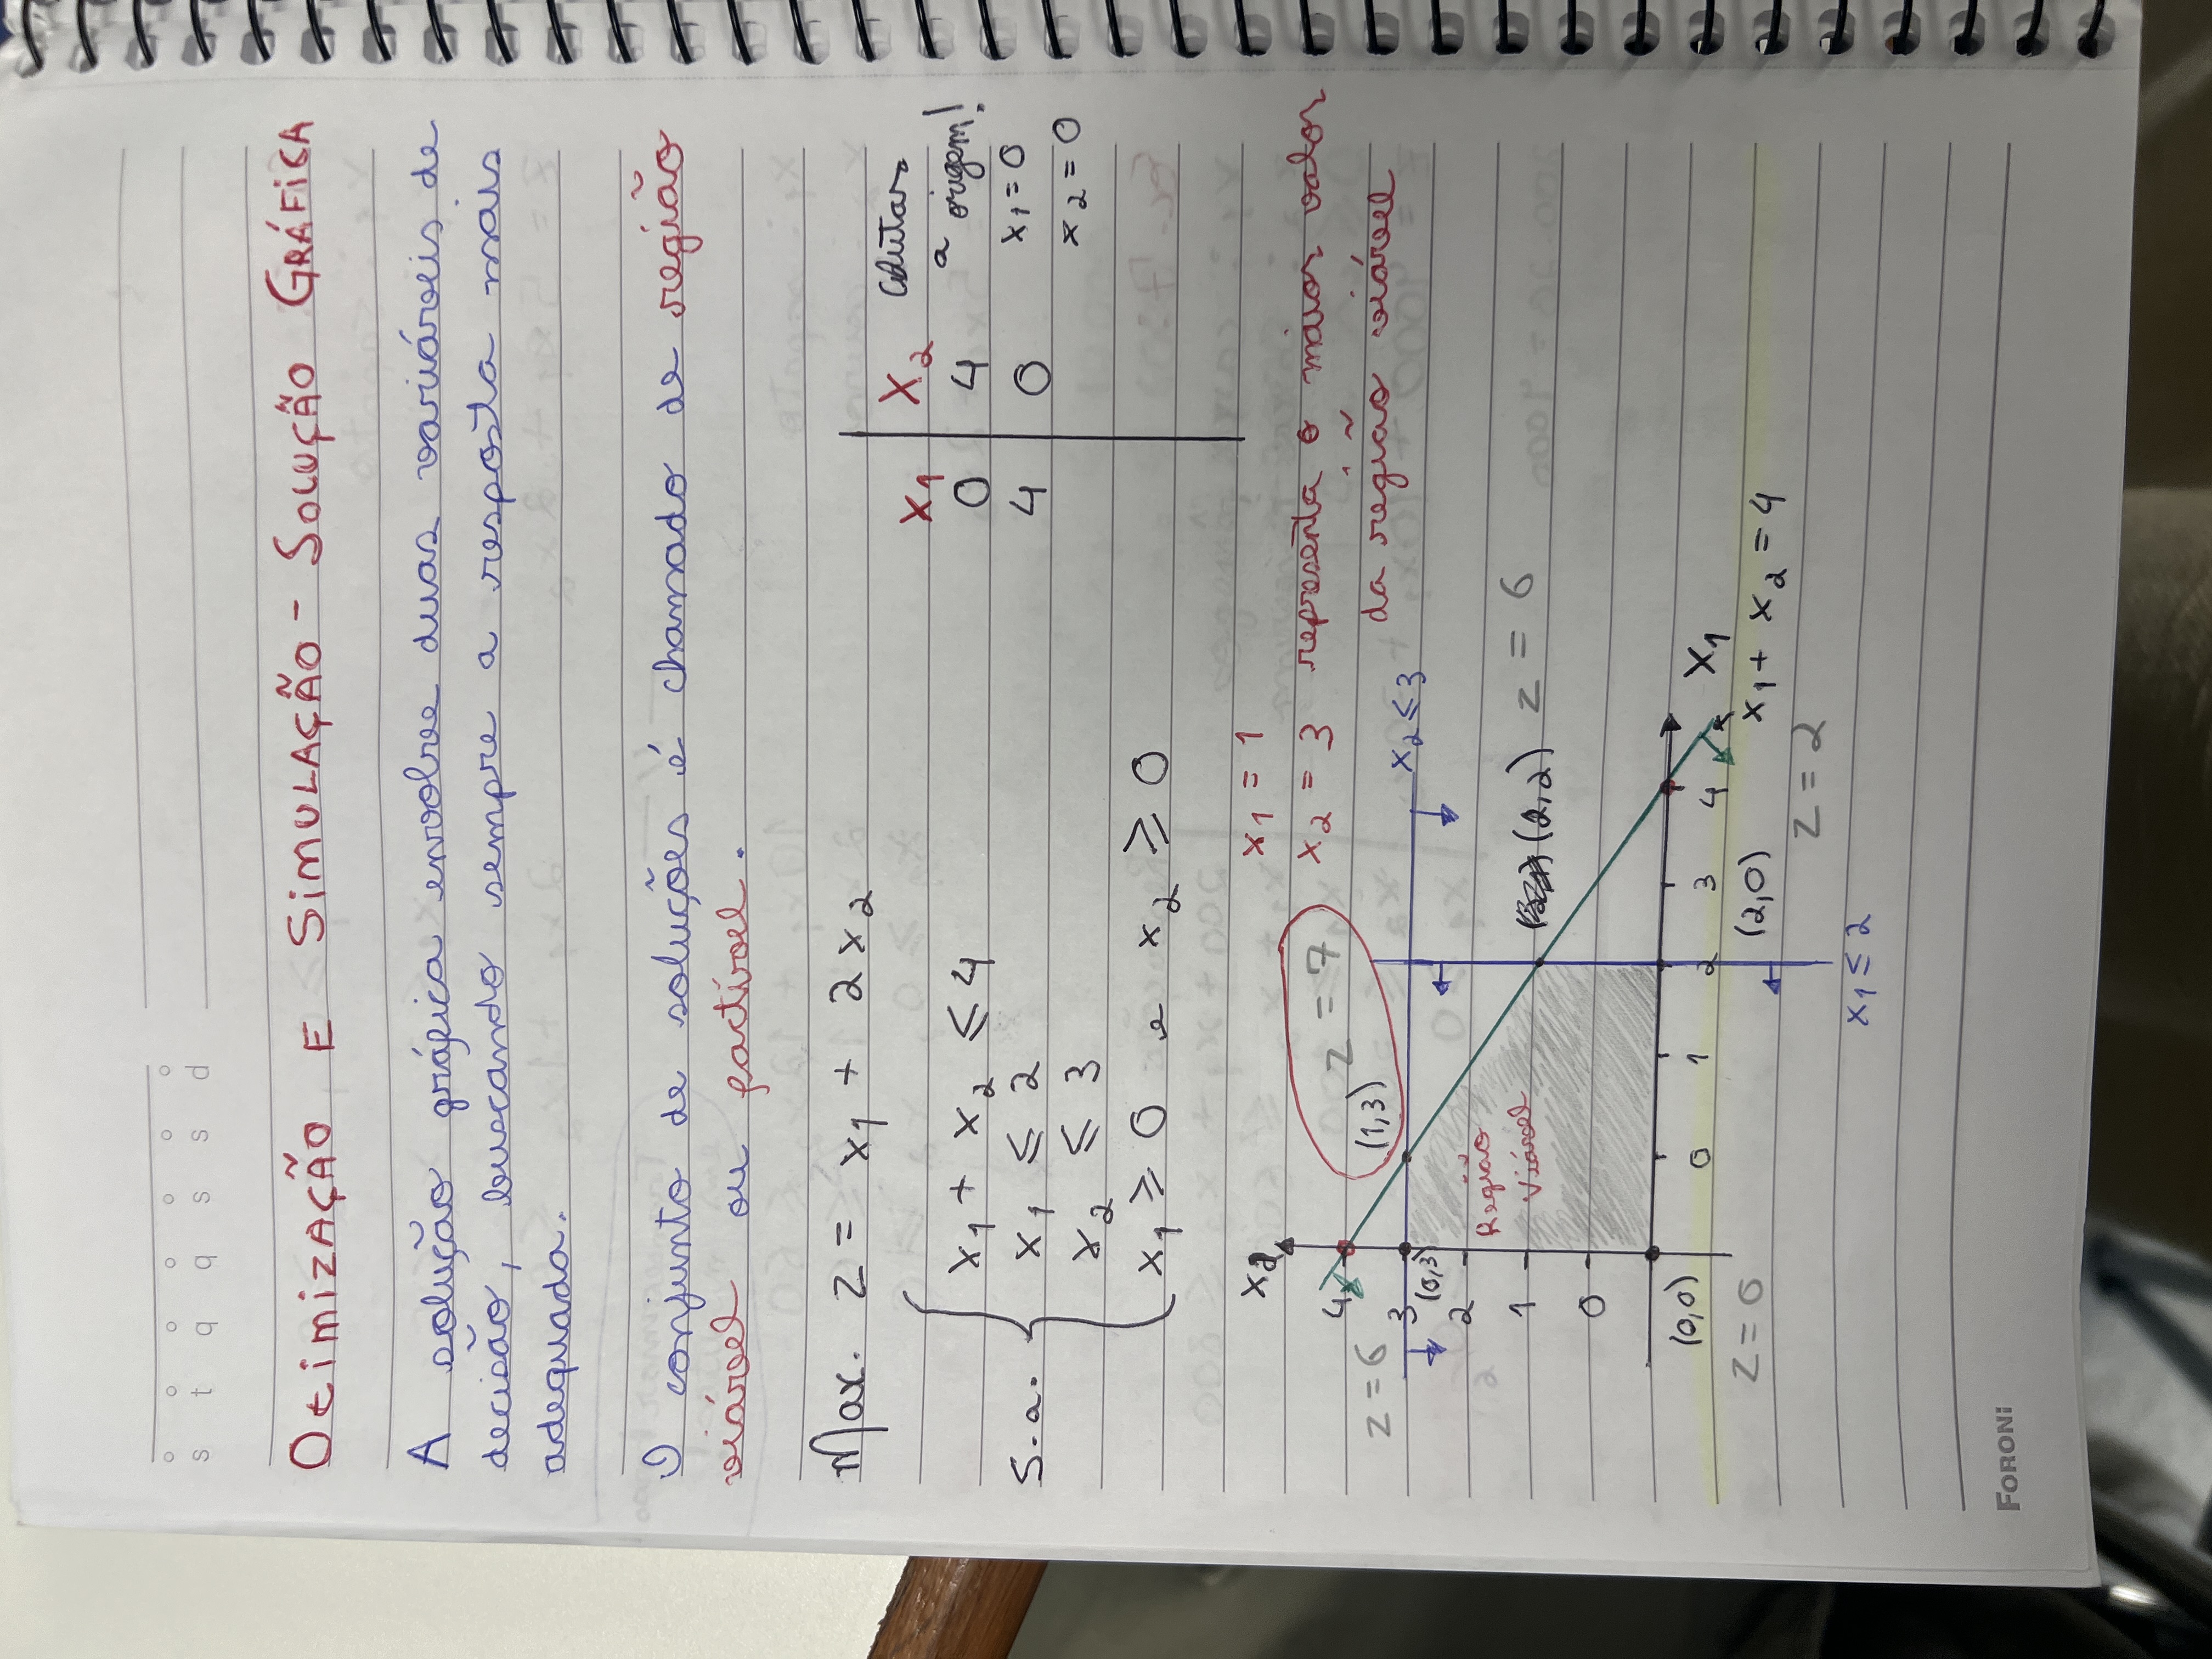 s t q q s s d
Otimização e Simulação - Solução Gráfica
A solução gráfica envolve duas variáveis de
decisão, buscando sempre a resposta mais
adequada.
O conjunto de soluções é chamado de região
viável ou factível.
Max. z = x₁ + 2x₂
S.a. { x₁ + x₂ ≤ 4
x₁ ≤ 2
x₂ ≤ 3
x₁ ≥ 0 e x₂ ≥ 0
x₁ | x₂
0 | 4
4 | 0
a origem!
x₁ = 0
x₂ = 0
x₁ = 1
x₂ = 3 representa o maior valor
da região viável
x₂
4
z = 7
(1,3)
z = 6
3
(0,3)
x₂ ≤ 3
2
Região
Viável
1
(2,2) z = 6
0
(0,0)
0 1 2 3 4 x₁
z = 0
(2,0)
x₁ + x₂ = 4
z = 2
x₁ ≤ 2
FORONI